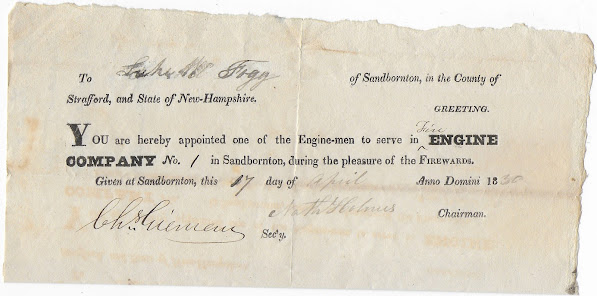 To Fogg of Sandbornton, in the County of
Strafford, and State of New-Hampshire.
GREETING.
YOU are hereby appointed one of the Engine-men to serve in Fire ENGINE
COMPANY No. 1 in Sandbornton, during the pleasure of the FIREWARDS.
Given at Sandbornton, this 17 day of April Anno Domini 1830
Chairman.
Sec'y.